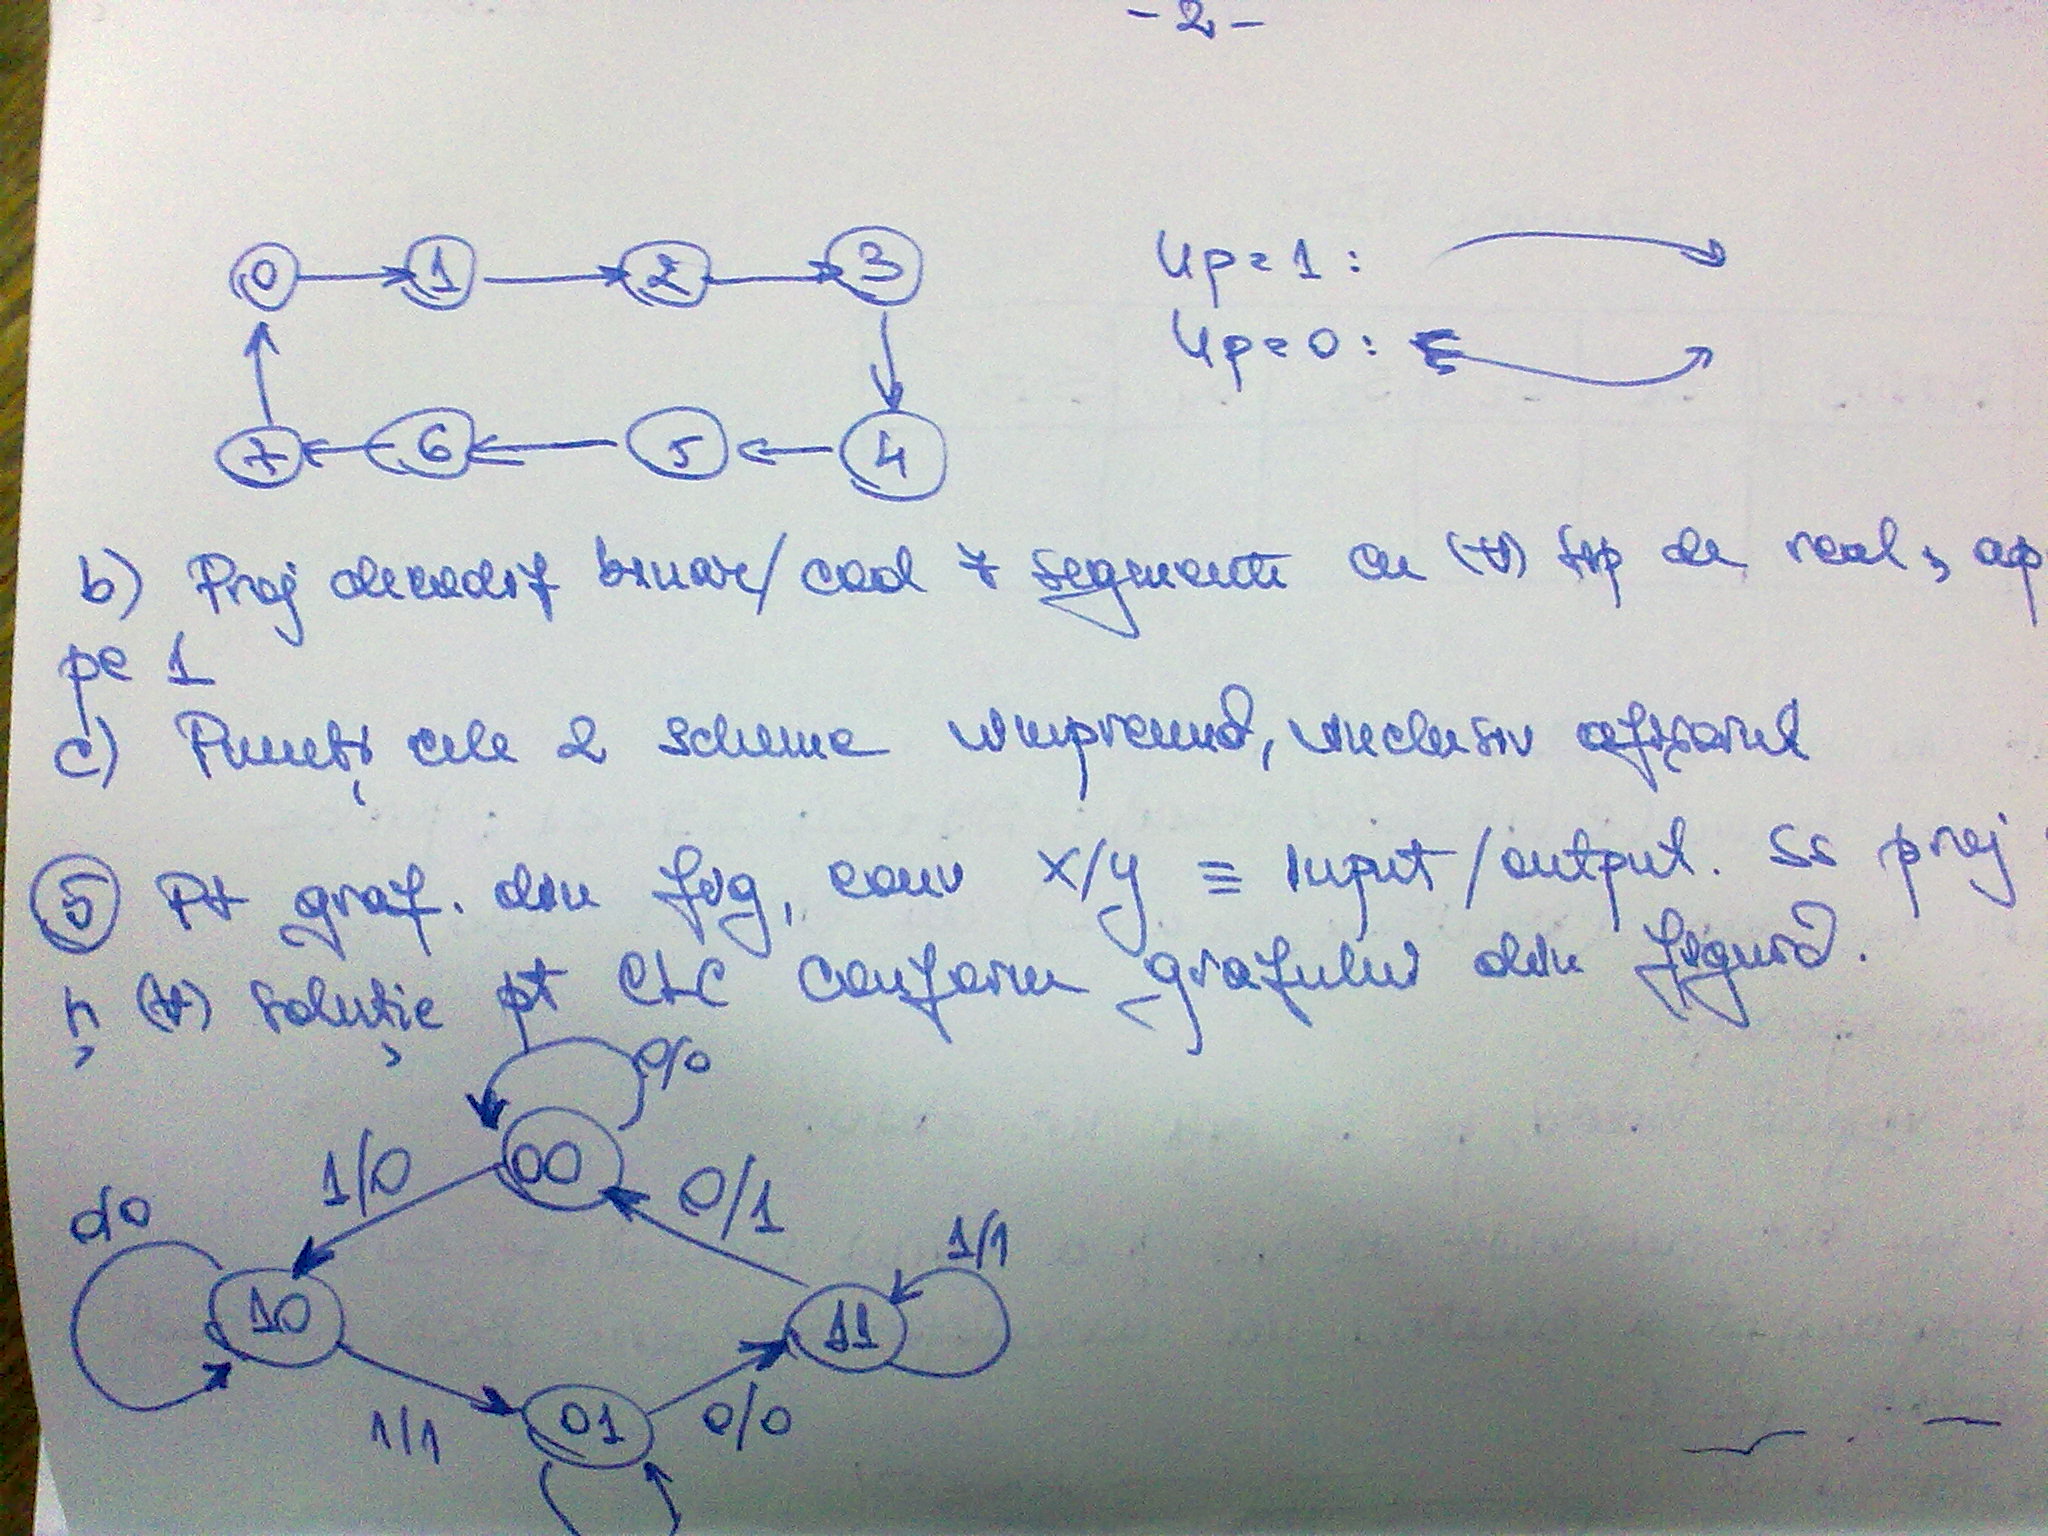 - 2 -
0 1 2 3 Up = 1 :
Up = 0 :
7 6 5 4
b) Proj decodif binar/cod 7 segmente cu (∀) tip de real, ap
pe 1
c) Puneți cele 2 scheme împreună, inclusiv afișarul
5 Pt graf. din fig, conv x/y ≡ input/output. Să proj
(∀) soluție pt CLC conform grafului din figură.
0/0
00
1/0 0/1
1/1
10 11
1/1 01 0/0